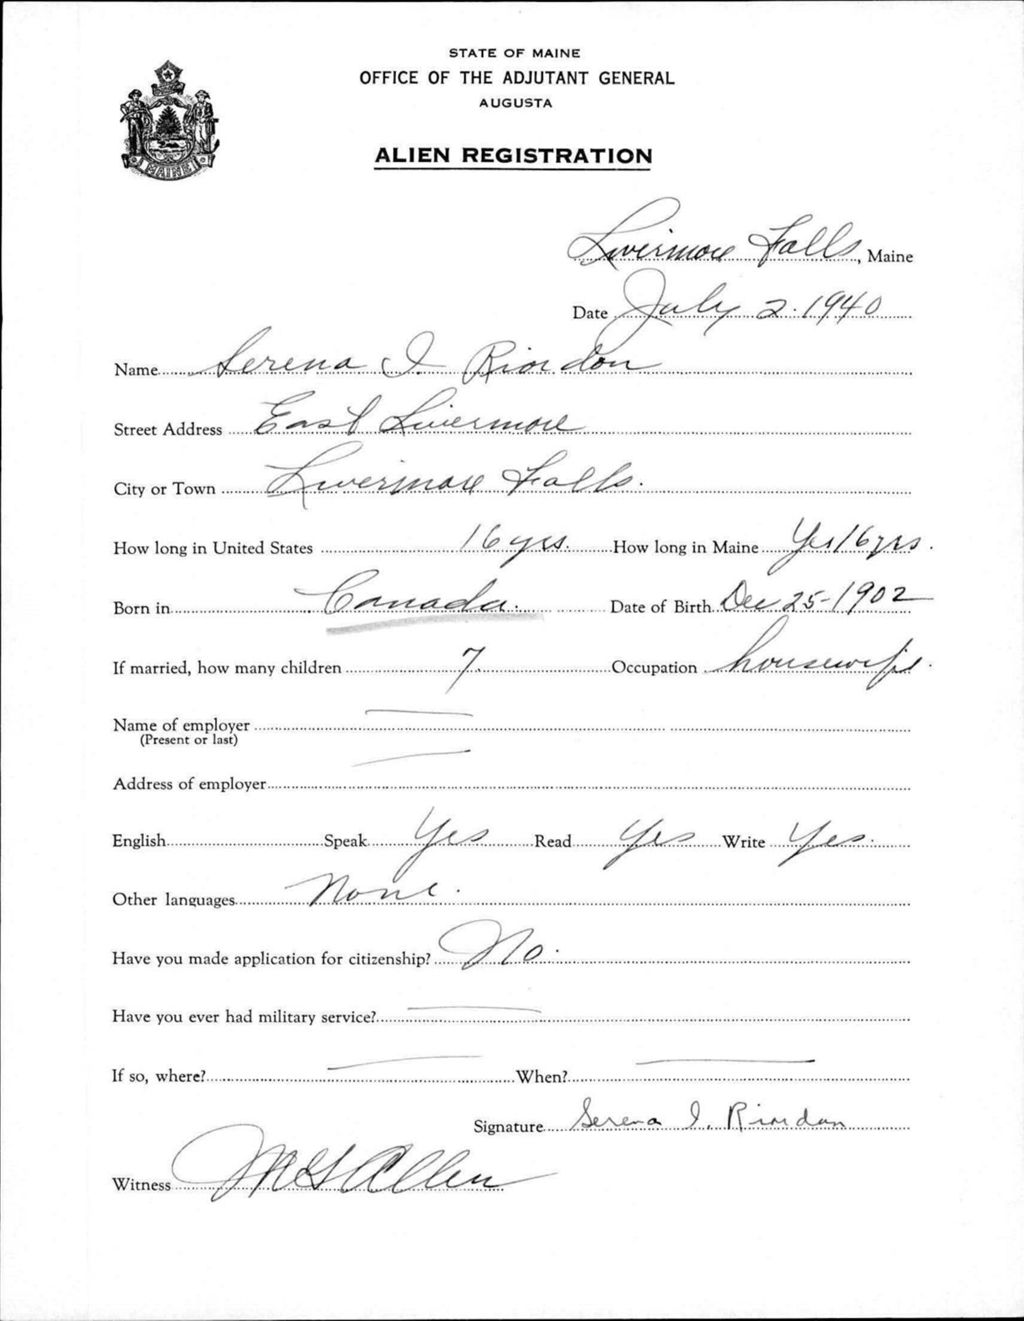 STATE OF MAINE
OFFICE OF THE ADJUTANT GENERAL
AUGUSTA
ALIEN REGISTRATION
MAINE
Livermore Falls, Maine
Date July 2. 1940
Name Serena I Riordon
Street Address East Livermore
City or Town Livermore Falls.
How long in United States 16 yrs. How long in Maine Yes 16 yrs.
Born in Canada. Date of Birth Dec 25-1902
If married, how many children 7 Occupation housewife.
Name of employer
(Present or last)
Address of employer
English Speak Yes Read Yes Write Yes.
Other languages None.
Have you made application for citizenship? No.
Have you ever had military service?
If so, where? When?
Signature Serena I. Riordon
Witness M G Allen